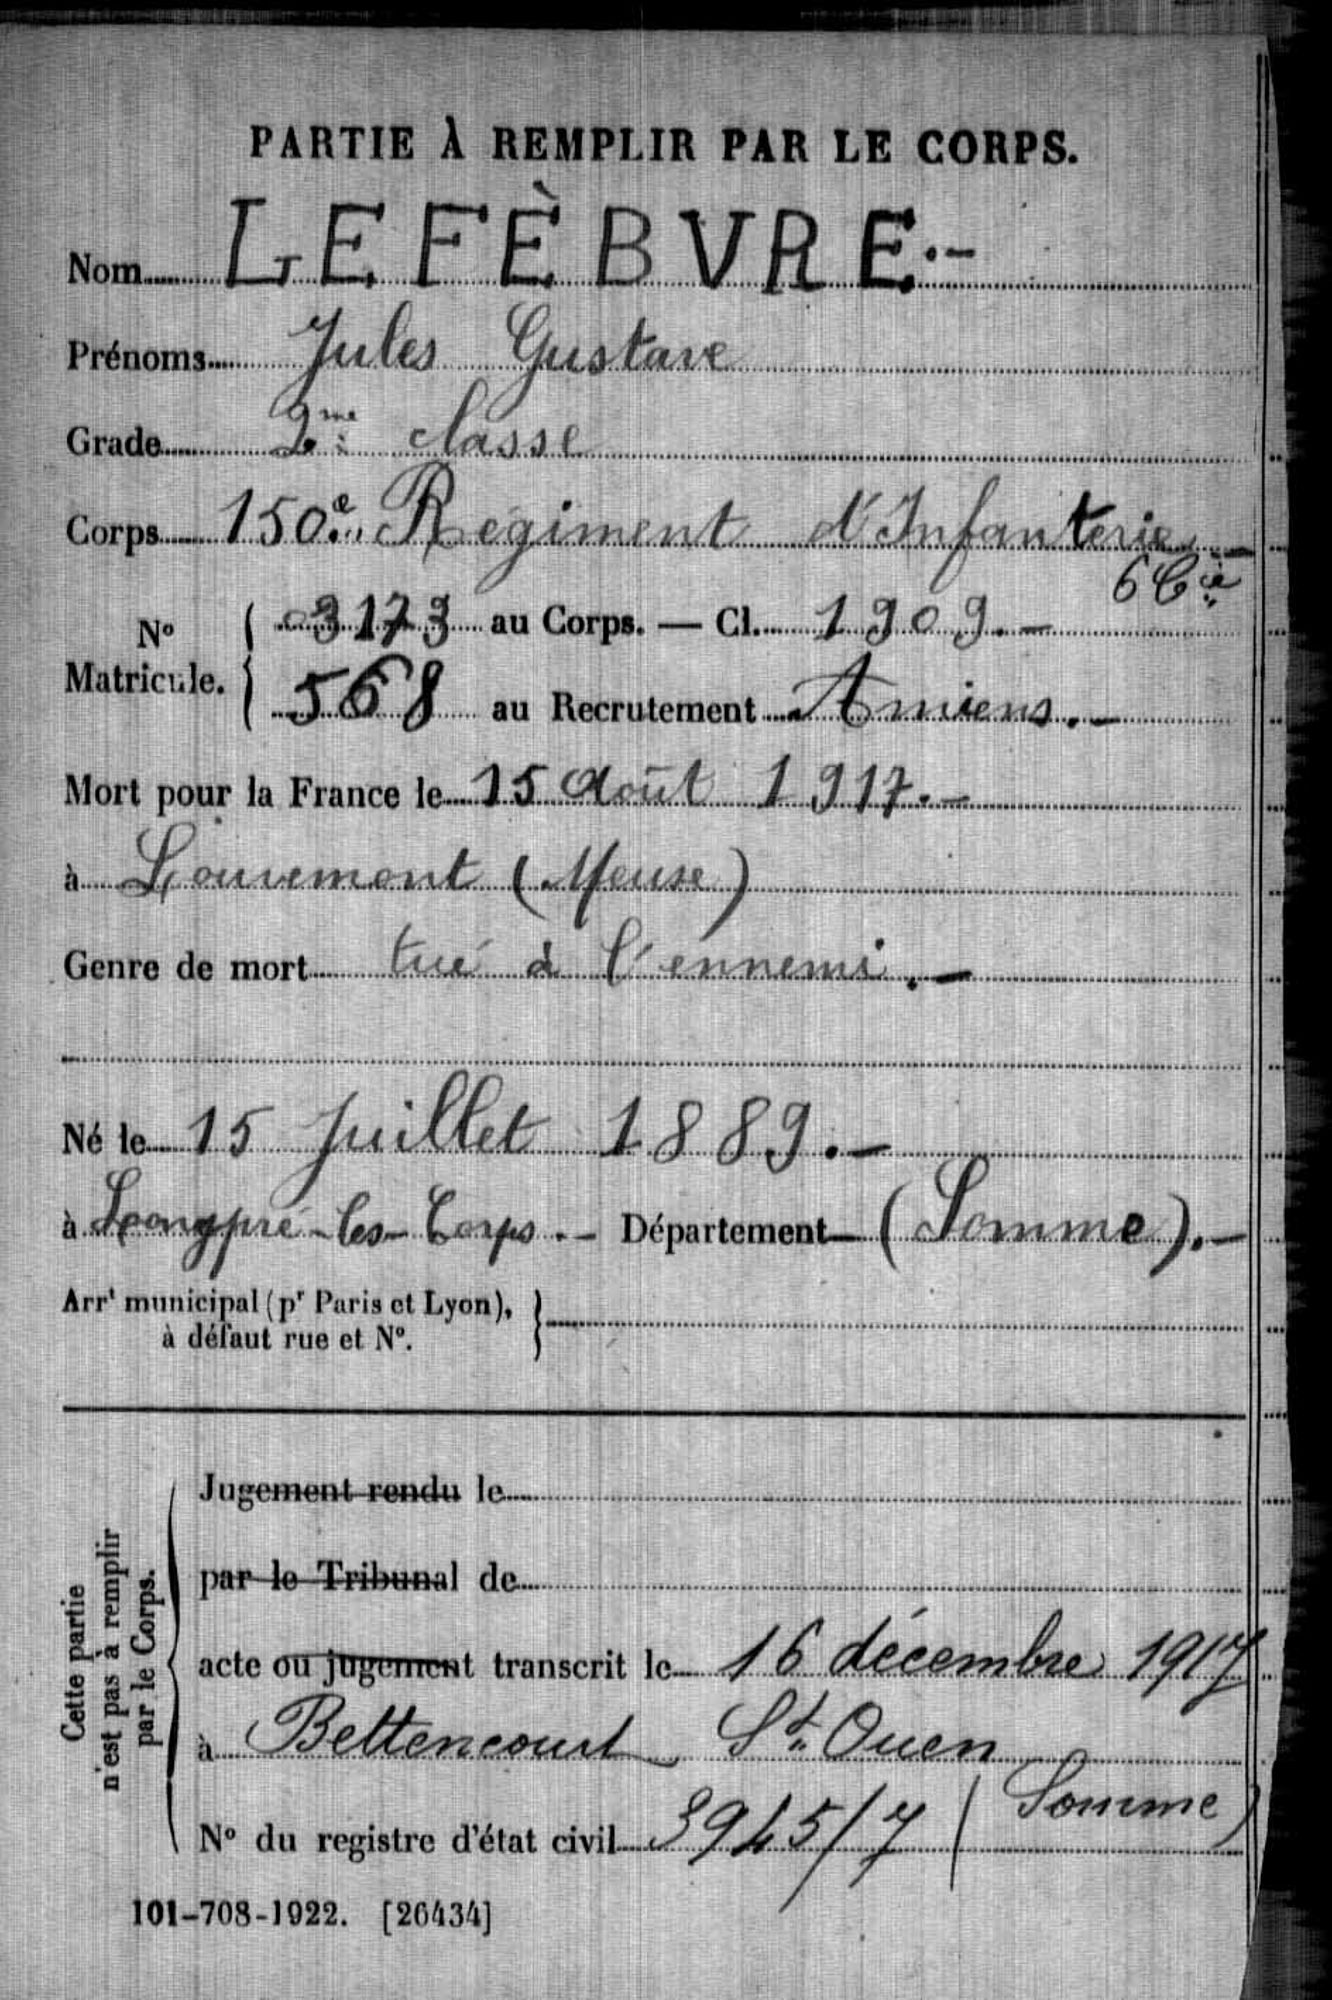 PARTIE À REMPLIR PAR LE CORPS.
Nom LEFÈBVRE.-
Prénoms Jules Gustave
Grade 2me classe
Corps 150e Régiment d'Infanterie
6 Cie
No Matricule. { 03173 au Corps. — Cl. 1909.-
{ 568 au Recrutement Amiens.-
Mort pour la France le 15 Août 1917.-
à Louvemont (Meuse)
Genre de mort tué à l'ennemi.-
Né le 15 Juillet 1889.-
à Longpré-les-Corps.- Département (Somme).-
Arrt municipal (pr Paris et Lyon),
à défaut rue et No.
Cette partie
n'est pas à remplir
par le Corps.
Jugement rendu le
par le Tribunal de
acte ou jugement transcrit le 16 décembre 1917
à Bettencourt St. Ouen
(Somme)
No du registre d'état civil 3945/7
101-708-1922. [26434]